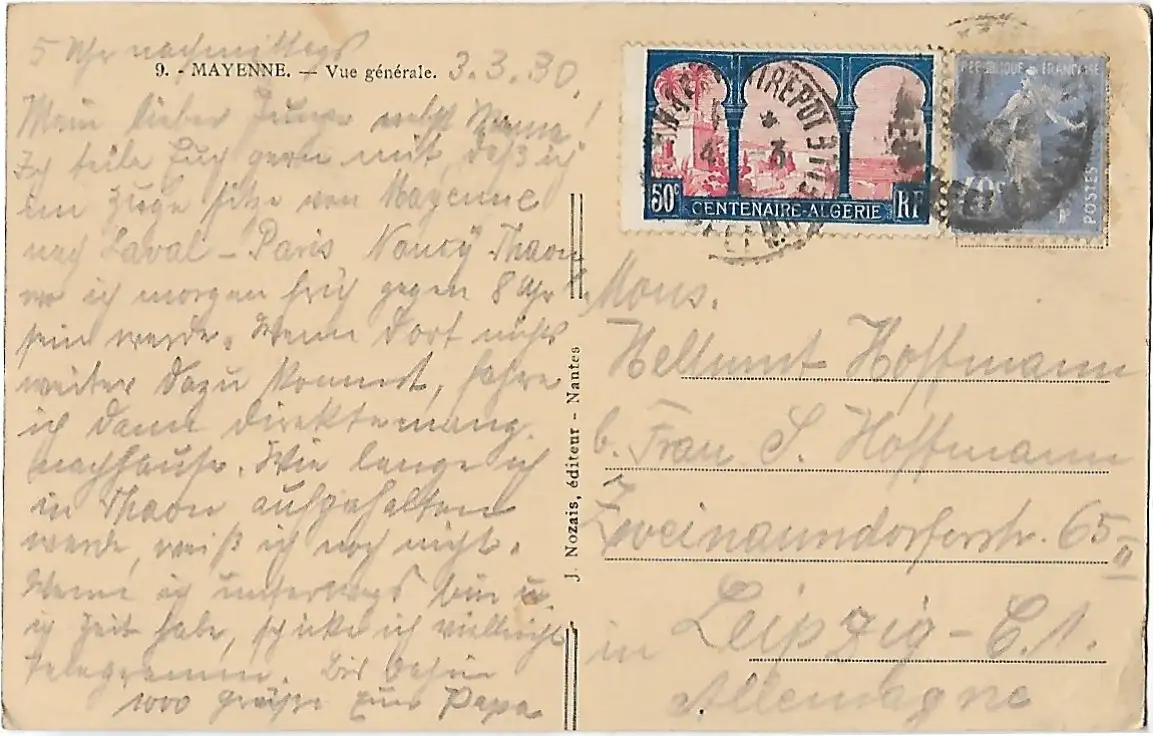 5 Uhr nachmittags
9. - MAYENNE. — Vue générale. 3.3.30.
Mein lieber Junge nebst Mama!
Ich teile Euch gern mit, daß ich
im Zuge sitze von Mayenne
nach Laval – Paris Nancy Thaon
wo ich morgen früh gegen 8 Uhr
sein werde. Wenn dort nichts
weiter dazu kommt, fahre
ich dann direktemang
nachhause. Wie lange ich
in Thaon aufgehalten
werde, weiß ich noch nicht.
Wenn ich unterwegs bin u.
ich Zeit habe, schicke ich vielleicht
Telegramm. Bis dahin
1000 Grüße Euer Papa
J. Nozais, éditeur - Nantes
50c CENTENAIRE-ALGÉRIE RF
REPUBLIQUE FRANÇAISE
40c POSTES
ENTREPOT
Mons.
Hellmut Hoffmann
b. Frau S. Hoffmann
Zweinaundorferstr. 65 II
in Leipzig – C 1.
Allemagne